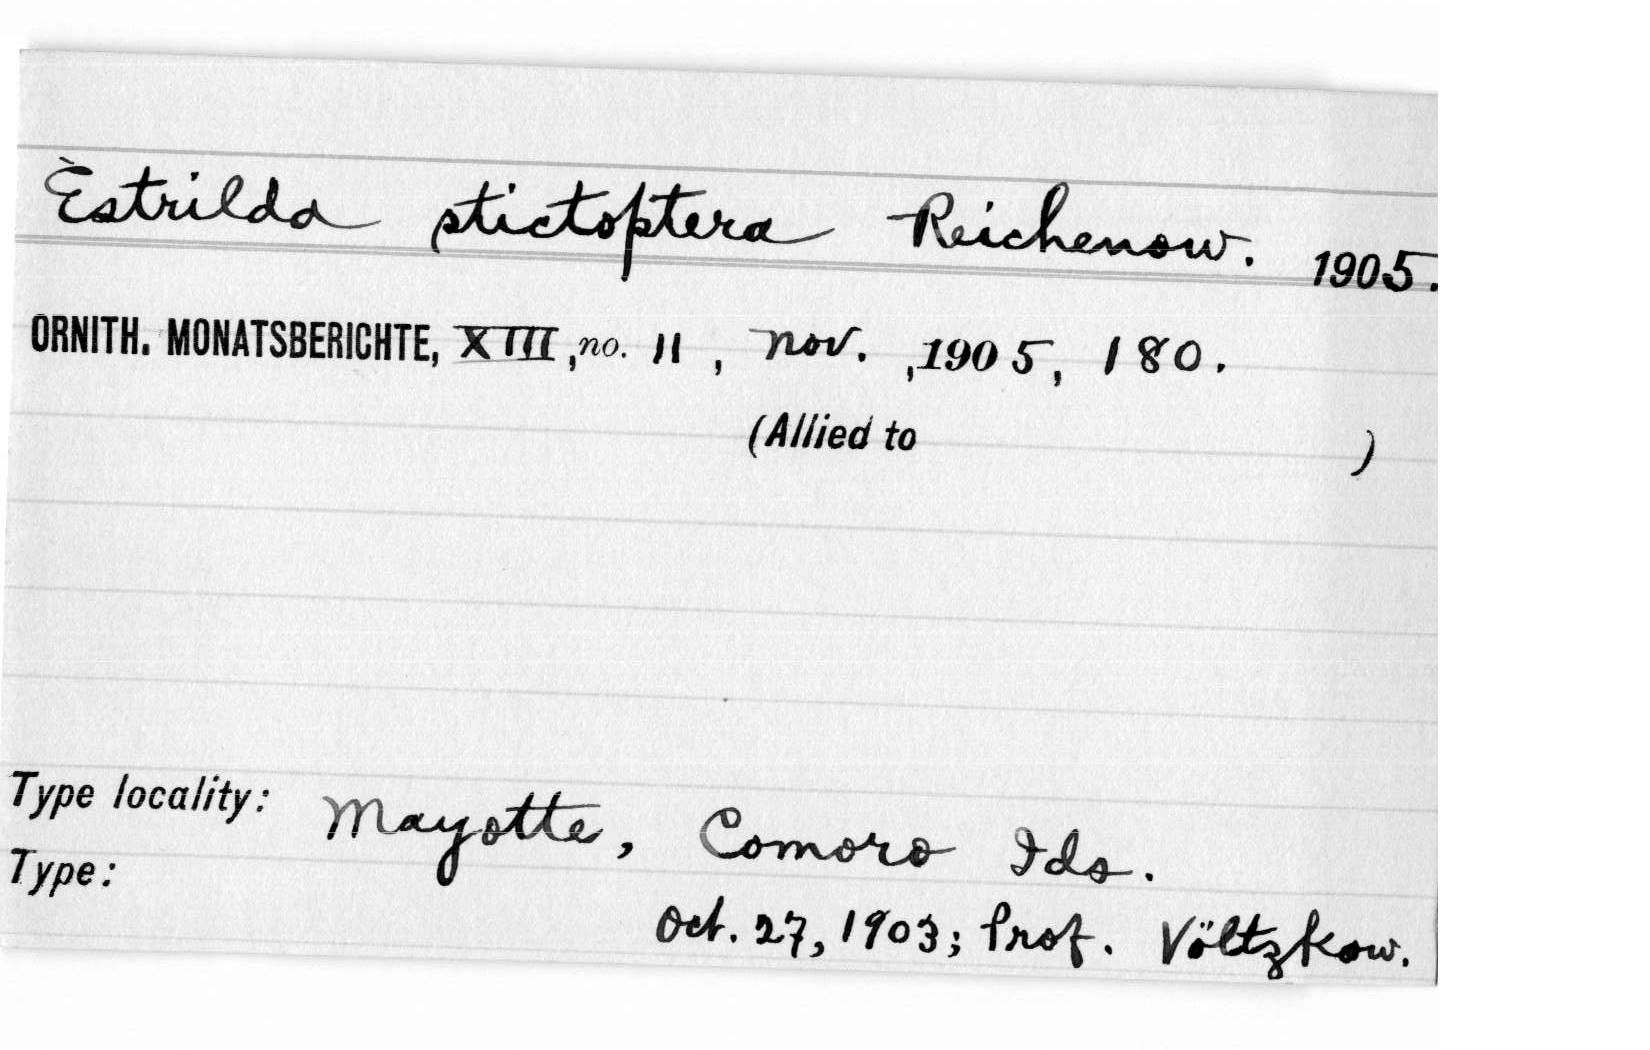 Estrilda stictoptera Reichenow. 1905.
ORNITH. MONATSBERICHTE, XIII, no. 11, Nov., 1905, 180.
(Allied to )
Type locality: Mayotte, Comoro Ids.
Type:
Oct. 27, 1903; Prof. Völtzkow.